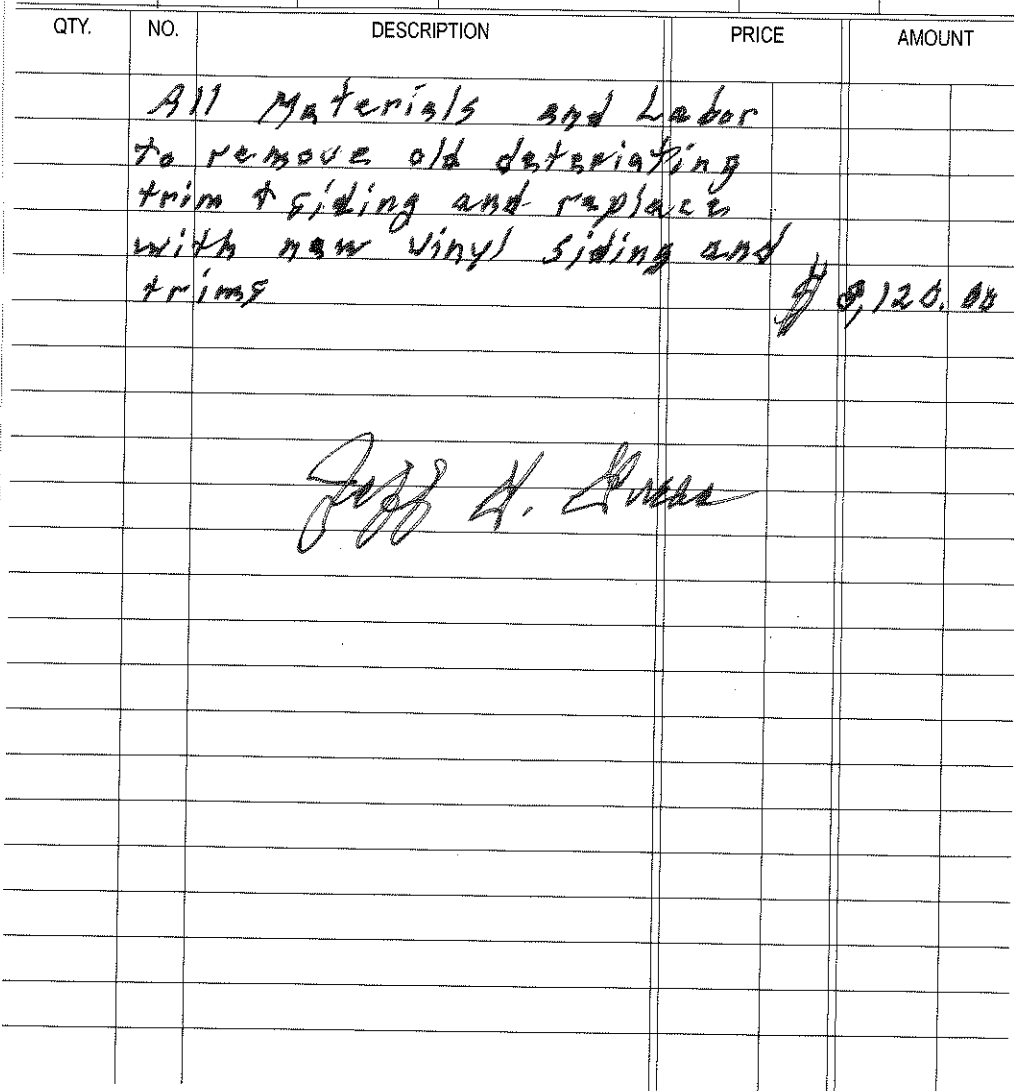 QTY. NO. DESCRIPTION PRICE AMOUNT
All Materials and Labor
to remove old deteriating
trim + siding and replace
with new vinyl siding and
trims $ 8,120.00
Jeff H.